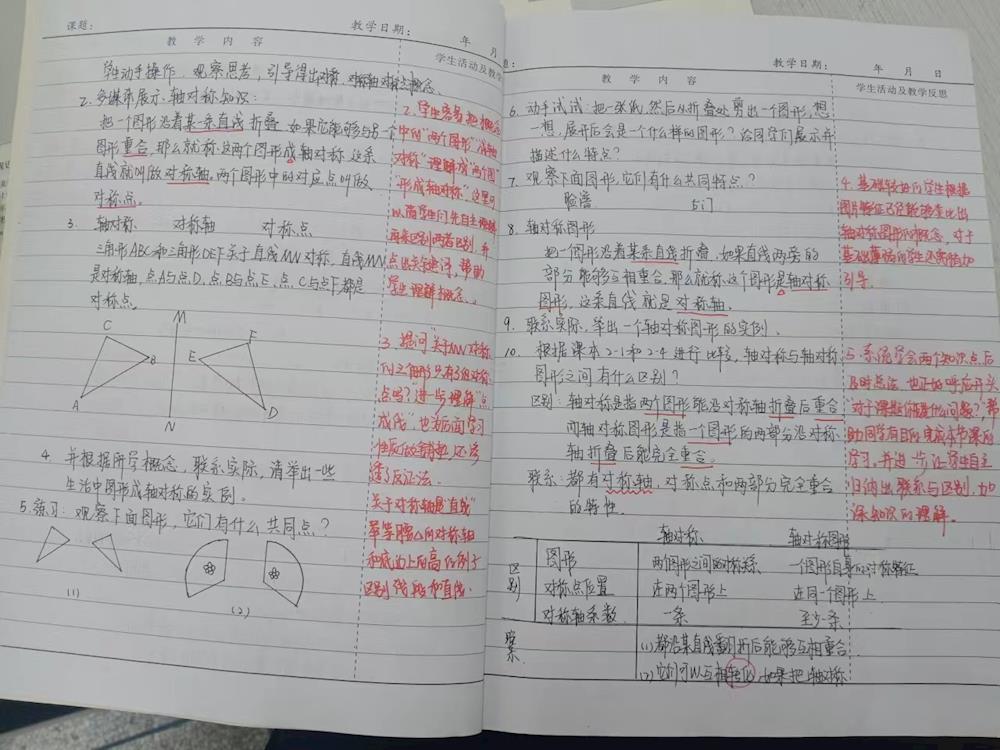 课题：
教学日期：
年 月
教 学 内 容
学生活动及教学
学生动手操作，观察思考，引导得出对称，对称轴对称点概念、
2、多媒体展示、轴对称知识：
把一个图形沿着某一条直线折叠，如果它能够与另一个
图形重合，那么就称这两个图形成轴对称，这条
直线就叫做对称轴。两个图形中的对应点叫做
对称点。
3、轴对称 对称轴 对称点
三角形ABC和三角形DEF关于直线MN对称，直线MN
是对称轴，点A与点D、点B与点E、点C与点F都是
对称点。
M
C
B
A
N
E
F
D
4、并根据所学概念，联系实际，请举出一些
生活中图形成轴对称的实例。
5、练习：观察下面图形，它们有什么共同点？
(1)
(2)
2、学生容易把概念
中的"两个图形"成轴
对称"理解成"两个图
"形成轴对称"这里可
以简学生们先自主
再来区别两者区别，并
点出关键词，帮助
学生理解概念。
3、提问"关于MN对称
的三角形只有3组对称
点吗？"进一步理解"点
成线"，也为后面学习
性质做铺垫，还渗
透了反证法。
关于对称轴是"直线"
举等腰△的对称轴
和底边上的高的例子
区别线段和直线。
题：
教学日期：
年 月 日
教 学 内 容
学生活动及教学反思
6、动手试试：把一张纸，然后从折叠处剪出一个图形，想
一想，展开后会是一个什么样的图形？给同学们展示并
描述什么特点？
7、观察下面图形，它们有什么共同特点？
脸谱
8、轴对称图形
把一个图形沿着某条直线折叠，如果直线两旁的
部分能够互相重合，那么就称这个图形是轴对称
图形，这条直线就是对称轴。
9、联系实际，举出一个轴对称图形的实例、
10、根据课本2-1和2-4进行比较，轴对称与轴对称
图形之间有什么区别？
区别：轴对称是指两个图形能沿对称轴折叠后重合
而轴对称图形是指一个图形的两部分沿对称
轴折叠后能完全重合。
联系：都有对称轴，对称点和两部分完全重合
的特性。
轴对称 轴对称图形
区别
图形 两图形之间的对称关系 一个图形自身的对称特征
对称点位置 在两个图形上 在同一个图形上
对称轴条数 一条 至少一条
联系
(1)都沿某直线翻折后能够互相重合
(2)它们可以互相转化，如果把轴对称
4、基础较好的学生根据
图片特征已经能够类比出
轴对称图形的概念，对于
基础薄弱的学生还需增加
引导。
5、系统学会两个知识点后
及时总结，也正好呼应开头
"对于课题你有什么问题？"，帮
助同学有目的完成本节课的
学习，并进一步让学生自主
归纳出联系与区别，加
深知识的理解。